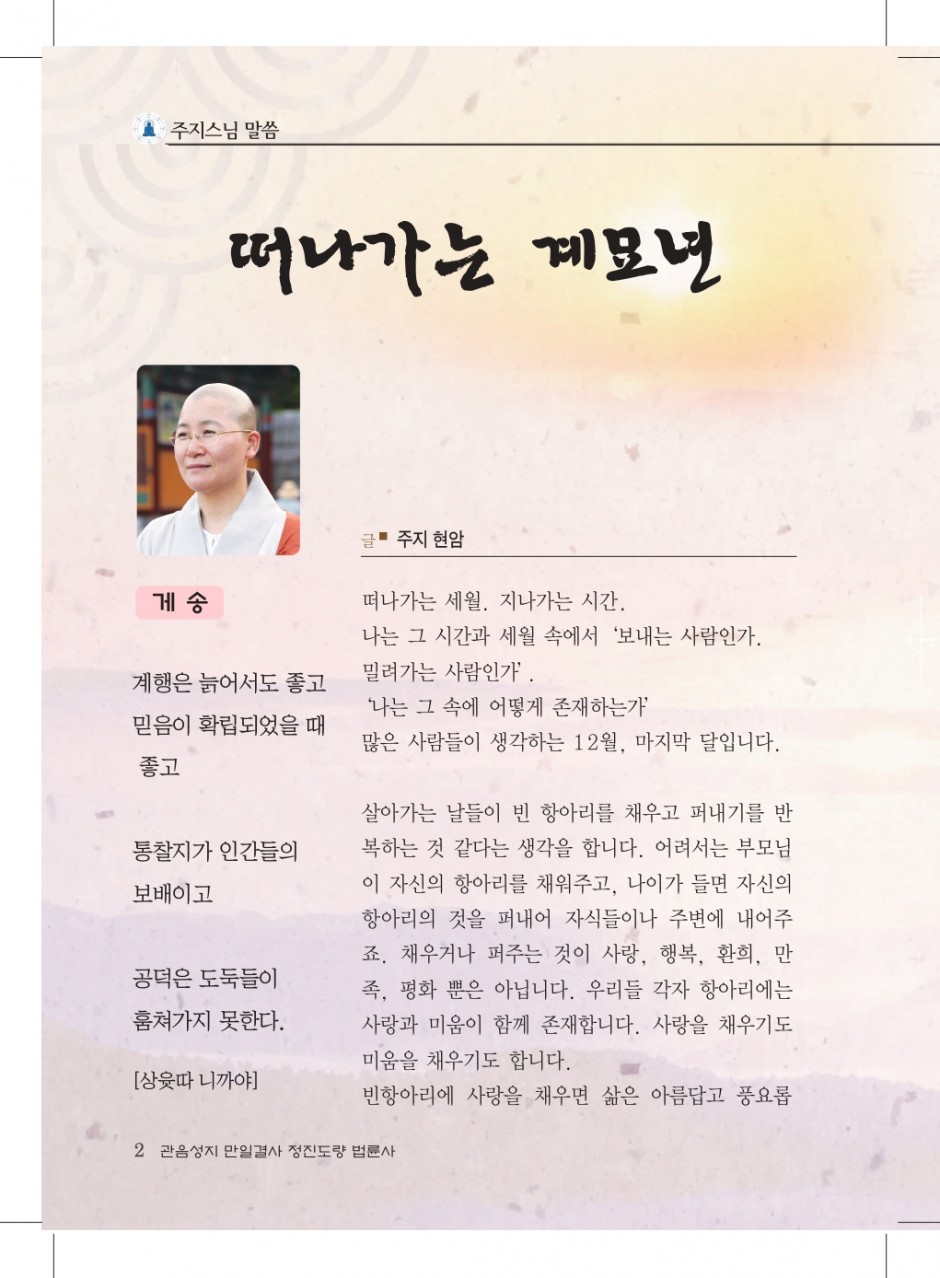 주지스님 말씀
떠나가는 계묘년
글■ 주지 현암
게 송
계행은 늙어서도 좋고
믿음이 확립되었을 때
좋고
통찰지가 인간들의
보배이고
공덕은 도둑들이
훔쳐가지 못한다.
[상윳따 니까야]
떠나가는 세월. 지나가는 시간.
나는 그 시간과 세월 속에서 ‘보내는 사람인가.
밀려가는 사람인가’.
‘나는 그 속에 어떻게 존재하는가’
많은 사람들이 생각하는 12월, 마지막 달입니다.
살아가는 날들이 빈 항아리를 채우고 퍼내기를 반
복하는 것 같다는 생각을 합니다. 어려서는 부모님
이 자신의 항아리를 채워주고, 나이가 들면 자신의
항아리의 것을 퍼내어 자식들이나 주변에 내어주
죠. 채우거나 퍼주는 것이 사랑, 행복, 환희, 만
족, 평화 뿐은 아닙니다. 우리들 각자 항아리에는
사랑과 미움이 함께 존재합니다. 사랑을 채우기도
미움을 채우기도 합니다.
빈항아리에 사랑을 채우면 삶은 아름답고 풍요롭
2 관음성지 만일결사 정진도량 법륜사